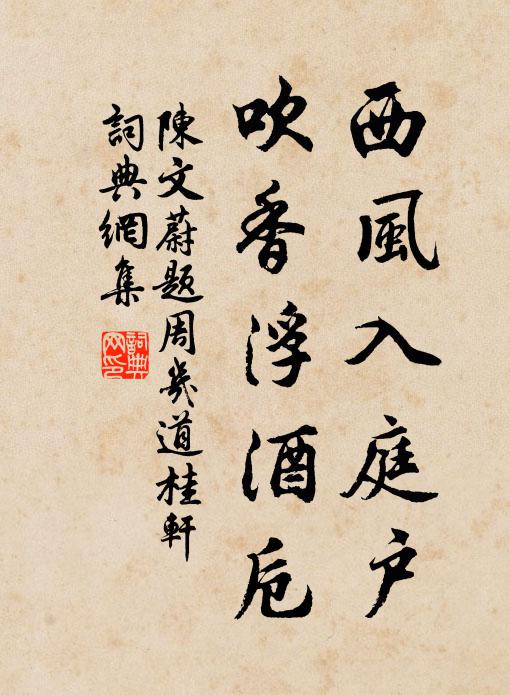 西風入庭户
吹香浮酒卮
陳文蔚題周幾道桂軒
詞典網集
詞典網印